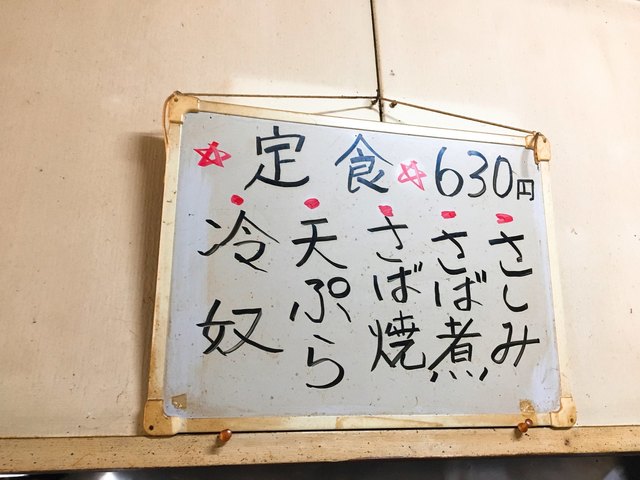 ☆定食☆630円
さしみ
さば煮
さば焼
天ぷら
冷奴